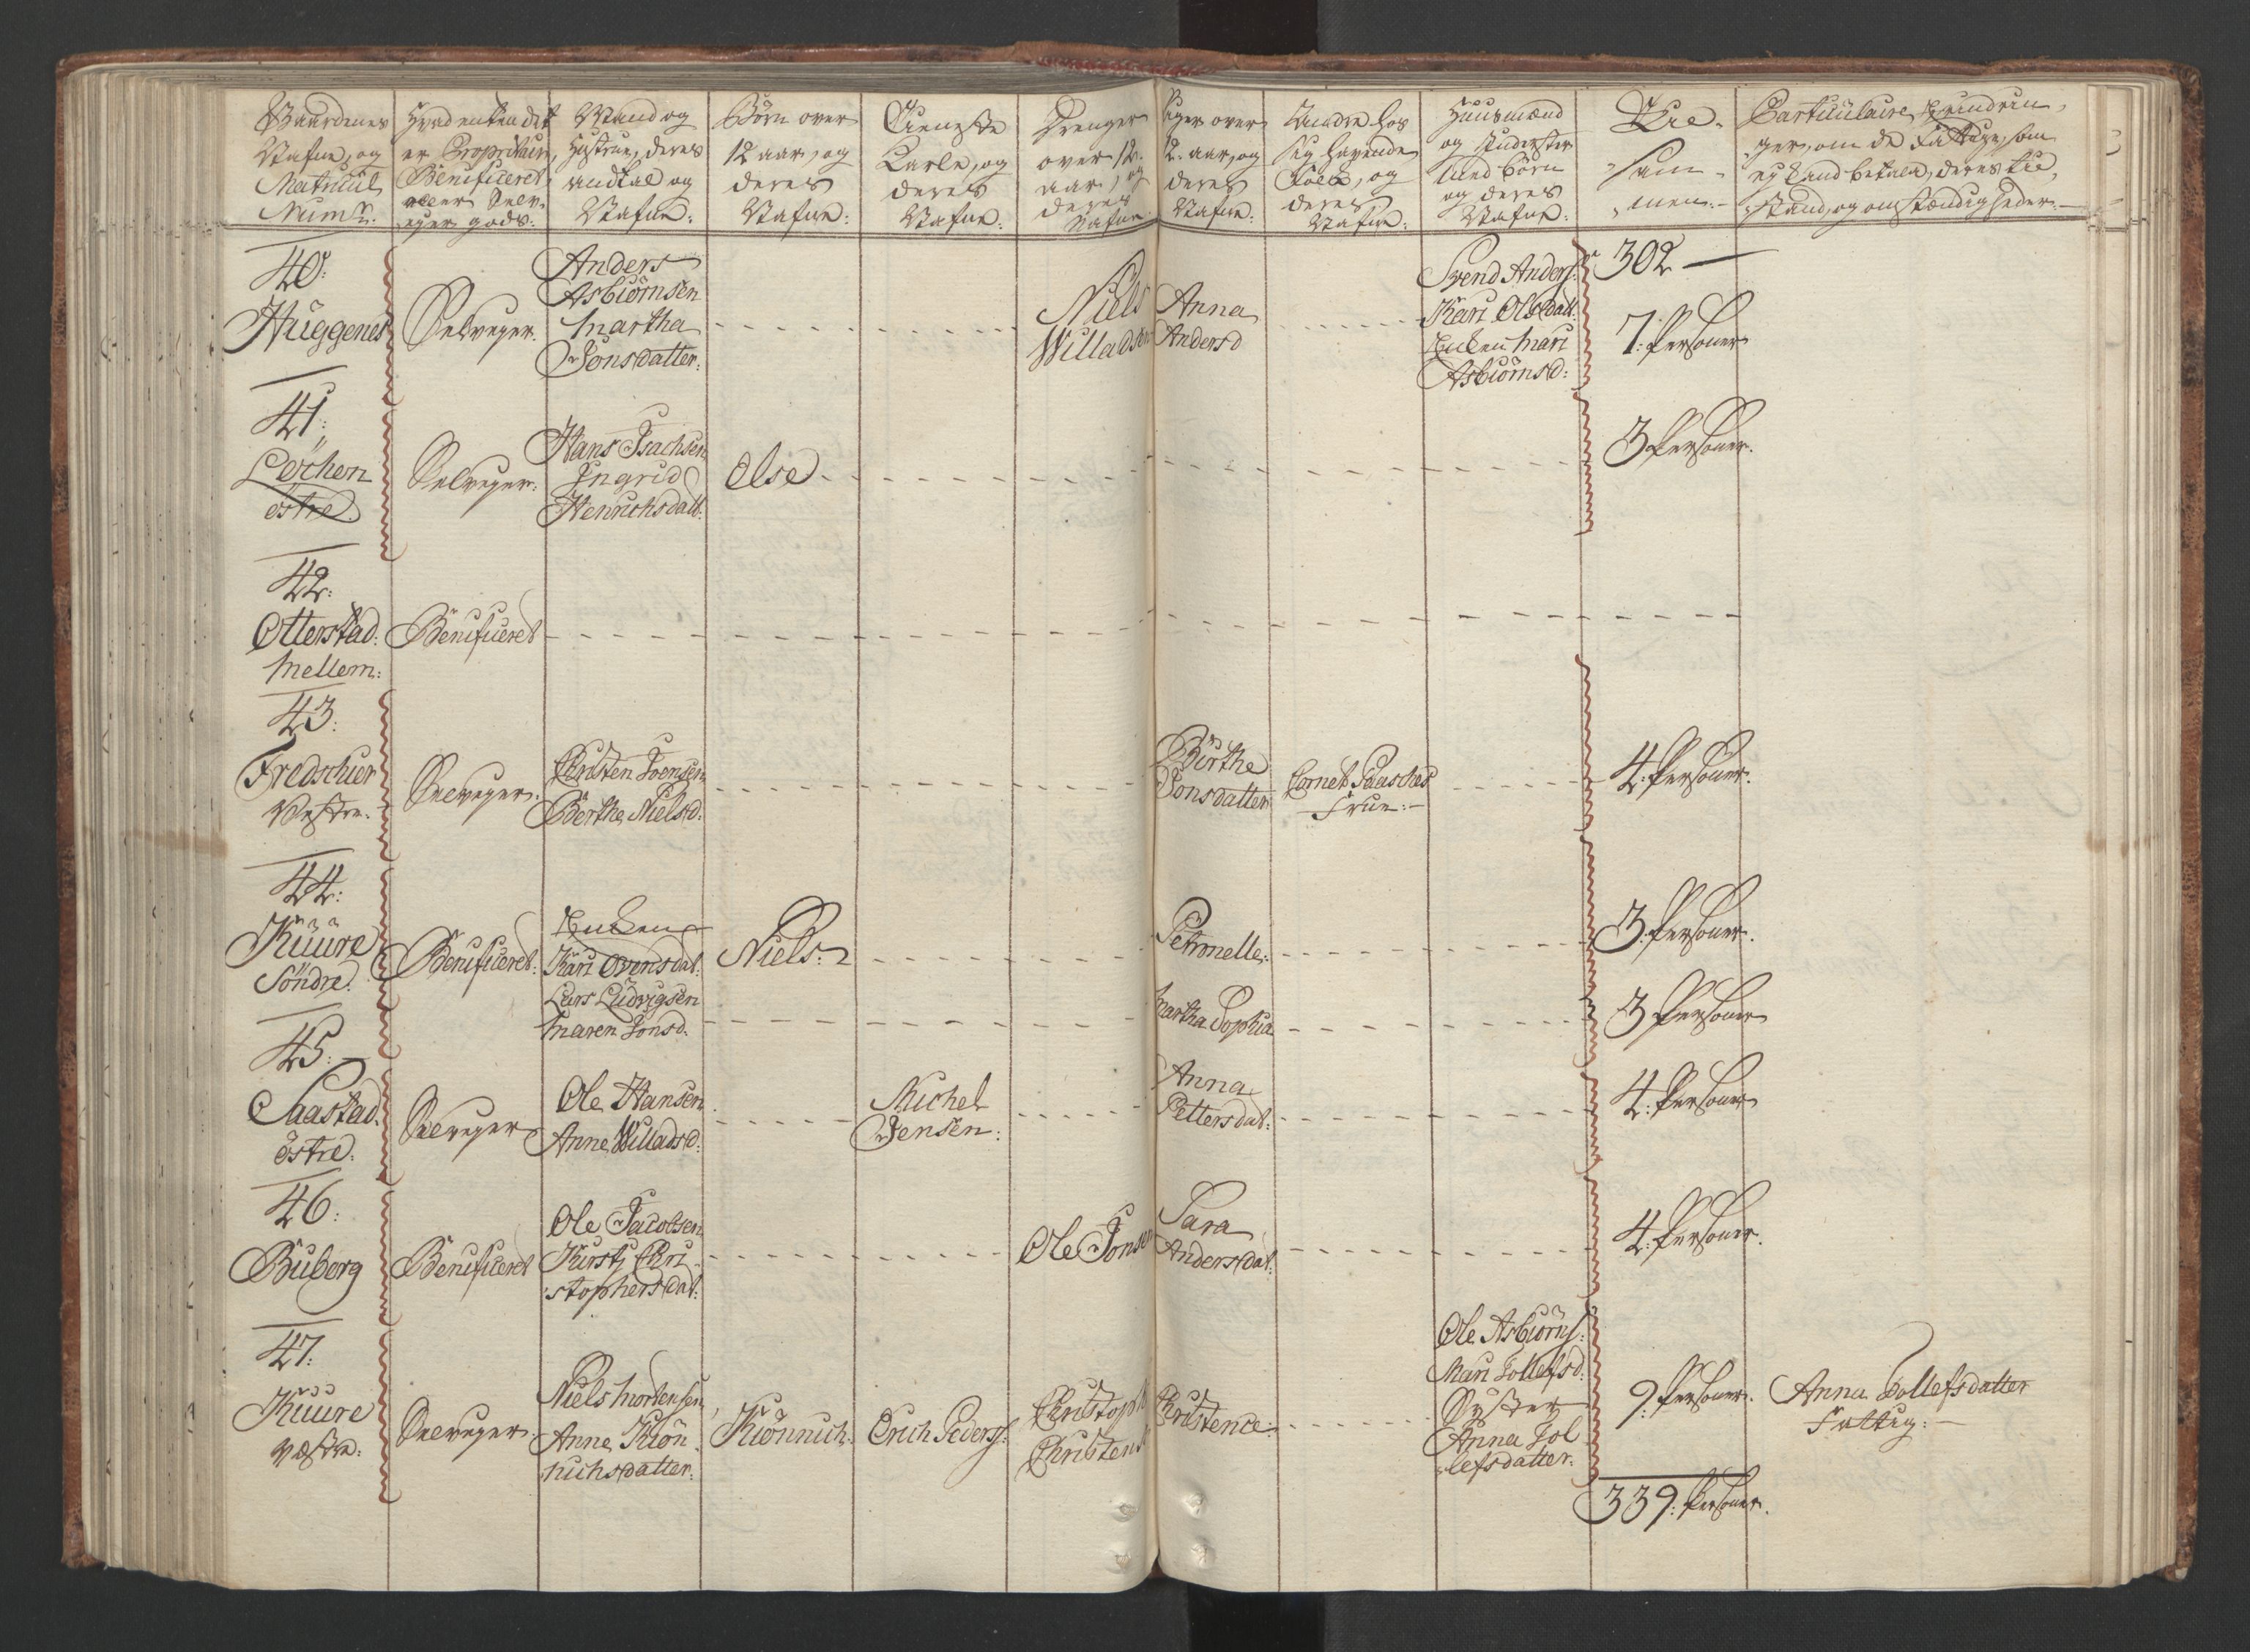 Gaardenes
Nafne, og
Matricül
Num:
Hvad enten det
er Propritair,
Benificeret,
eller Selv-
eyer gods:
Mand og
Hustrue, deres
andtal og
Nafne:
Børn over
12 aar, og
deres
Nafne:
Tieneste
Karle, og
deres
Nafne:
Drenger
over 12
aar, og
deres
Nafne
Piger over
12 aar, og
deres
Nafne:
Andre hos
sig havende
Folck, og
deres
Nafne:
Huusmænd
og
med børn
og deres
Nafne:
Til-
sam-
men:
Particulaire Erindrin-
ger, om de Fattige, som
ey kand betale, deres til-
stand, og omstændigheder:
302
40:
Huggenes
Selveyer.
Anders
Asbiörnsen
Martha
Jonsdatter:
Niels
Willadsen
Anna
Andersd
Svend Anders:
Kari Olsdatt:
Encken Mari
Asbiörnsd:
7: Personer
41:
Løchen
östre
Selveyer:
Hans Isachsen
Ingrid
Henrichsdatt:
Else
3 Personer.
42:
Otterstad
Mellem:
Benificeret
43:
Fredschier
Vestre:
Selveyer.
Christen Joensen
Berthe Nielsd:
Birthe
Jonsdatter
Cornet Paasches
Frue:
4: Personer.
44:
Kuure
Söndre:
Benificeret:
Encken
Kari Ovensdat:
Niels:
Petronelle:
3. Personer.
Lars Ludvigsen
Maren Jonsd:
Martha Sophia
3 Personer
45:
Saastad
östre:
Selveyer
Ole Hansen
Anne Willadsd:
Michel
Jensen:
Anna
Pettersdat:
4: Personer
46:
Buberg
Benificeret
Ole Jacobsen
Kirstj Chri-
stophersdat:
Ole Jonsen
Sara
Andersdat:
4: Personer.
47:
Kuure
Væstre:
Selveyer
Niels Mortensen
Anne Kiön-
nichsdatter:
Kiönnich.
Erich Peders:
Christoph
Christens
Christence:
Ole Asbiörns:
Mari Tollefsd:
Syster
Anna Tol-
lefsdatter.
9: Personer.
Anna Tollefsdatter
Fattig:
339: Personer.